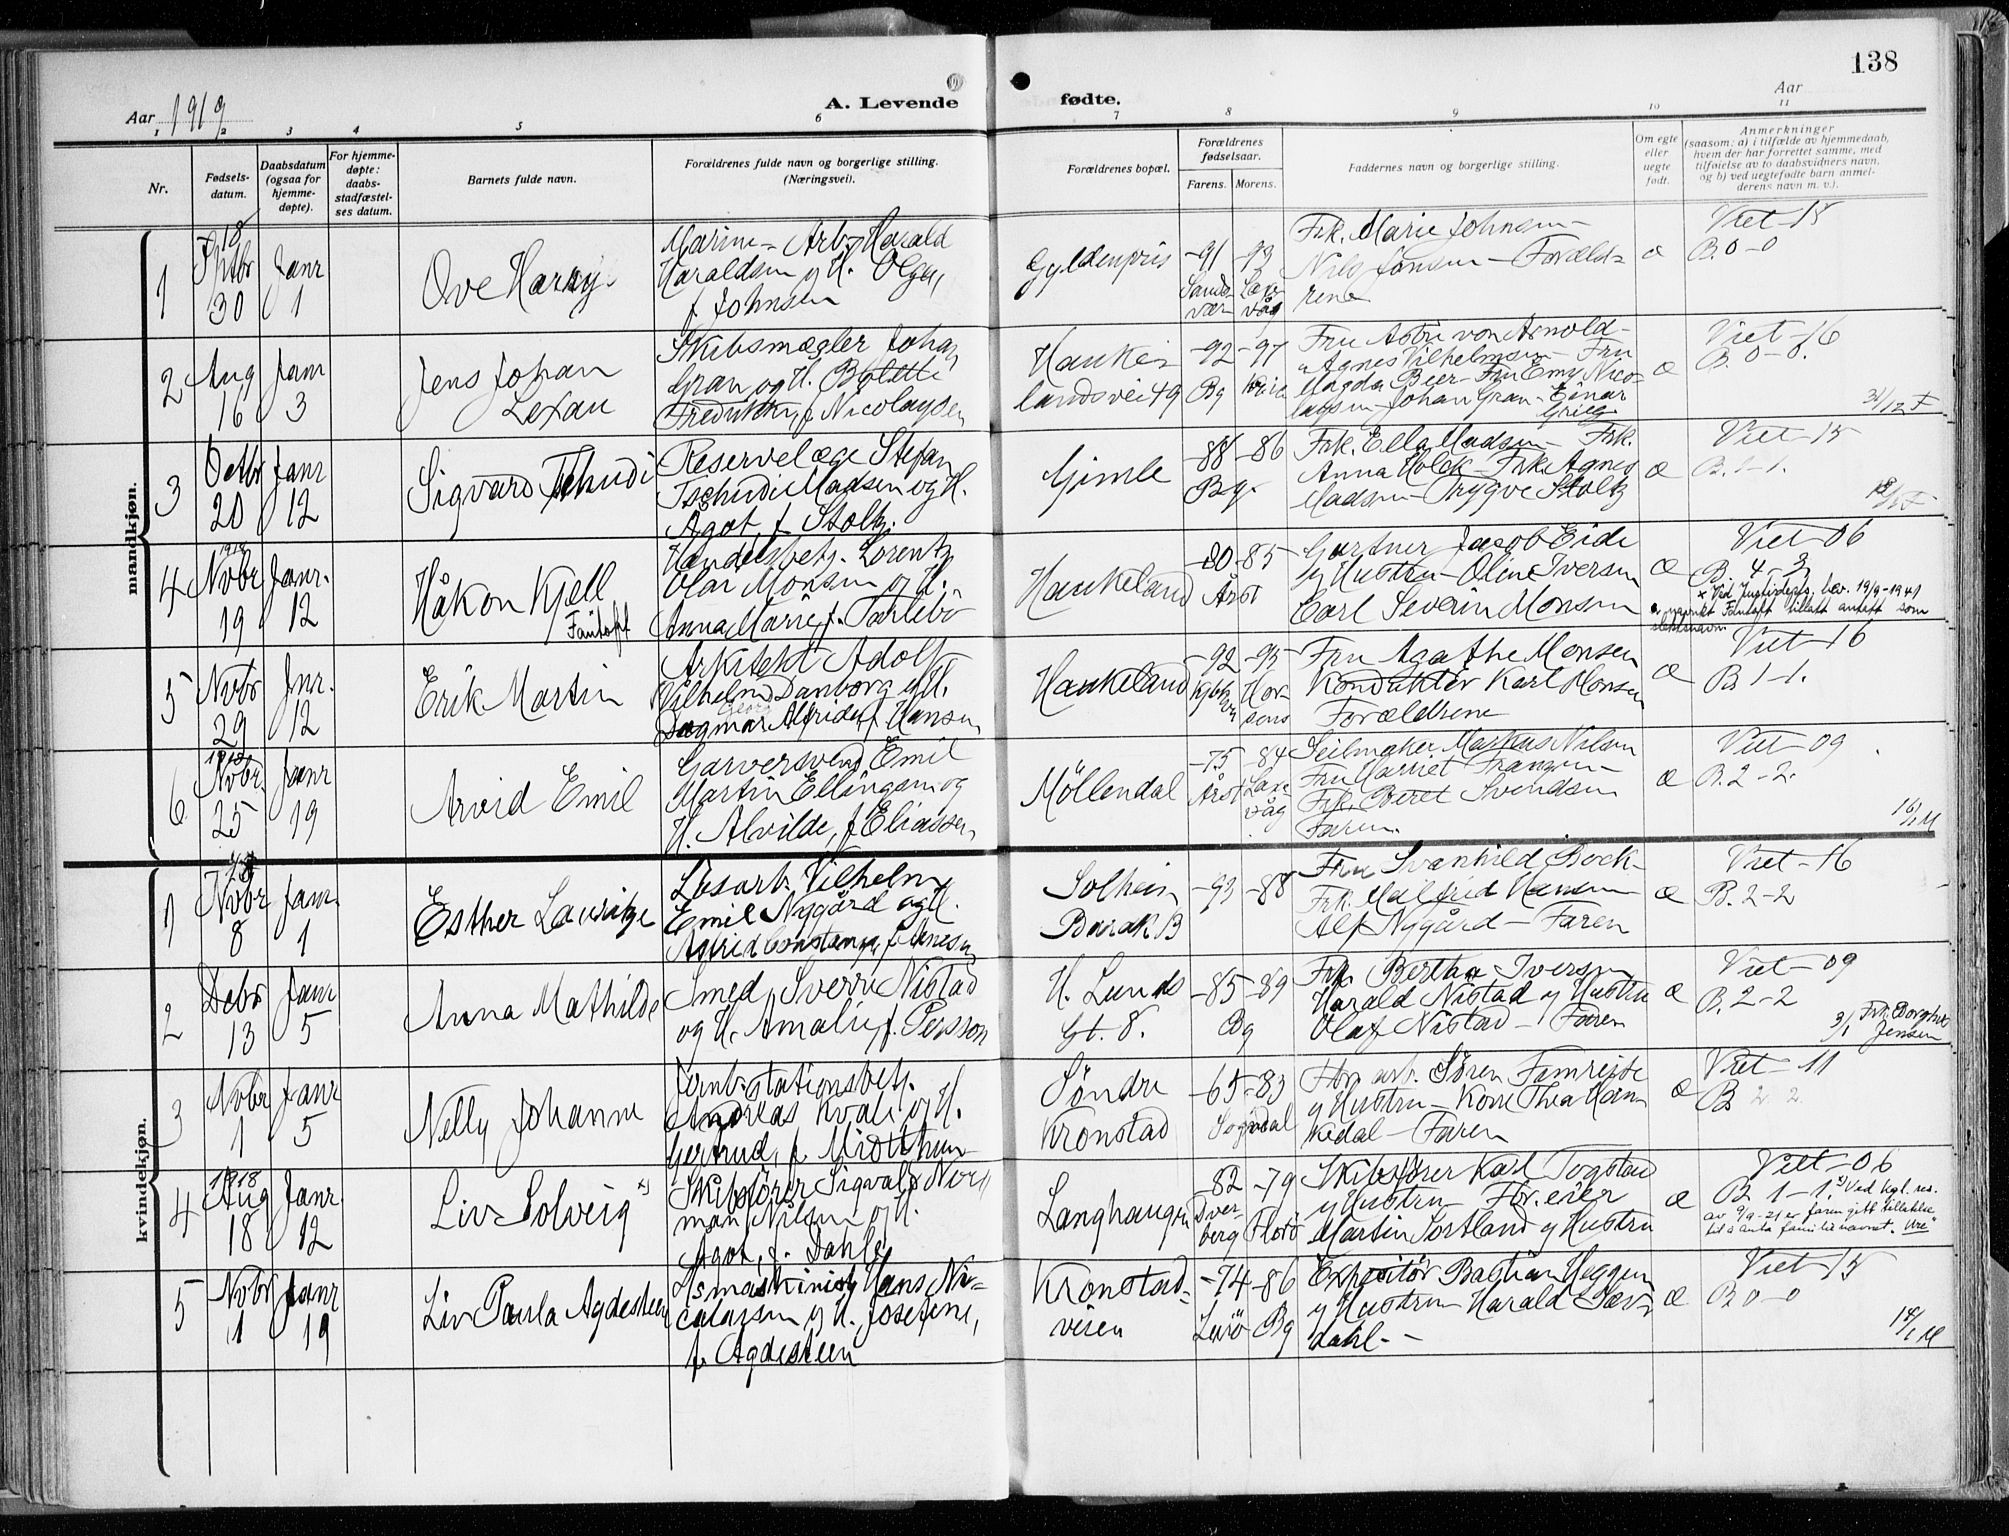 138
Aar 1919
A. Levende fødte.
Aar
1 2 3 4 5 6 7 8 9 10 11
Nr.
Fødsels-
datum.
Daabsdatum
(ogsaa for
hjemme-
døpte).
For hjemme-
døpte:
daabs-
stadfæstel-
ses datum.
Barnets fulde navn.
Forældrenes fulde navn og borgerlige stilling.
(Næringsvei).
Forældrenes bopæl.
Forældrenes
fødselsaar.
Farens. Morens.
Faddernes navn og borgerlige stilling.
Om egte
eller
uegte
født.
Anmerkninger
(saasom: a) i tilfælde av hjemmedaab,
hvem der har forrettet samme, med
tilføielse av to daabsvidners navn,
og b) ved uegtefødte barn anmel-
derens navn m. v.).
mandkjøn.
1
18
Sptbr
30
Janr
1
Ove Harry
Marine-Arb. Harald
Haraldsen og H. Olga,
f. Johnsen
Gyldenpris
-91 -93
Sands-
vær
Laxe-
våg
Frk. Marie Johnsen-
Nils Jansen - Foræld-
rene
æ
Viet-18
B. 0-0
2
Aug
16
Janr
3
Jens Johan
Lexau
Skibsmægler Johan
Gran og H. Bolette
Fredrikke, f. Nicolaysen
Haukei
landsvei 49
-92 -97
Bg
Fru Astri von Arnold-
Agnes Vilhelmsen - Fru
Magda Beer - Fru Emy Nico-
laysen - Johan Gran - Einar
Grieg
æ
Viet-16
B. 0-0.
31/12 F
3
Octbr
20
Janr
12
Sigvard Tschudi
Reservelæge Stefan
Tschudi Madsen og H.
Ågot f. Stoltz.
Gimle
-88 -86
Bg.
Frk. Ella Madsen - Frk.
Anna Holck - Frk. Agnes
Madsen - Trygve Stoltz
æ
Viet-15
B. 1-1.
4
1918
Novbr
19
Janr.
12
Håkon Kjell
Fantoft
Handelsbetj. Lorentz
Olai Monsen og H.
Anna Marie, f. Tarlebö
Haukeland
-80 -85
Årst
Gartner Jacob Eide
og Hustru - Oline Iversen
Carl Severin Monsen
æ
Viet-06
B. 4-3
x Ved Justisdeps. bev. 19/9-1941
er navnet Fantoft tillatt antatt som
slektsnavn
5
Novbr
29
Jnr.
12
Erik Martin
Arkitekt Adolf
Vilhelm Danborg og H.
Georg
Dagmar Alfrida, f. Hansen
Haukeland
-92 -95
Kjbh
Hor-
sens
Fru Agathe Monsen
Konduktör Karl Monsen
Forældrene
æ
Viet-16
B. 1-1.
6
1918
Novbr.
25
Janr
19
Arvid Emil
Garversvend Emil
Martin Ellingsen og
H. Alvilde, f. Eliassen
Möllendal
-75 -84
Årst
Laxe
våg
Seilmaker Markus Nilsen
Fru Harriet Franzen-
Frk. Beret Svendsen
Faren.
æ
Viet-09
B. 2-2.
16/1 M
kvindekjøn.
1
Novbr
8
Janr.
1
Esther Lauritze
Lösarb. Vilhelm
Emil Nygård og H.
Astrid Constance, f. Arnesen
Solheim
Barak 13
-93 -88
Fru Svanhild Bock-
Frk. Malfrid Hansen
Alf Nygård - Faren
æ
Viet-16
B. 2-2
2
Debr
13
Janr
5
Anna Mathilde
Smed Sverre Nistad
og H. Amalie, f. Persson
H. Lunds
Gt. 8.
-85 -89
Bg
Frk. Bertha Iversen
Harald Nistad og Hustru
Olaf Nistad - Faren
æ
Viet-09
B. 2-2
3/1 Frk. Borghild
Jensen
3
Novbr
1
Janr
5
Nelly Johanne
Jernb.stationsbetj.
Andreas Kvale og H.
Gertrud, f. Midtthun
Söndre
Kronstad
-65 -83
Sogndal
Fbr. arb. Sören Famreite
og Hustru - Kone Thea Hau-
kedal - Faren
æ
Viet-11
B. 2 2
4
1918
Aug
18
Janr
12
Liv Solveig x)
Skibsförer Sigvald Nor-
man Nilsen og H.
Ågot, f. Dahle
Langhaugen
-82 -79
Dver-
berg
Florö
Skibsförer Karl Togstad
og Hustru - Fbr. eier
Martin Sortland og Hustru
æ
Viet-06
B. 1-1. x) Ved kgl. res.
av 9/9-21 er faren gitt tillatelse
til å anta familienavnet "Ure"
5
Novbr
1
Janr
19
Liv Paula Agdesteen
Ismaskinist Hans Ni-
colaysen og H. Josefine,
f. Agdesteen
Kronstad-
veien
-74 -86
Lurö Bg
Expeditör Bastian Heggen
og Hustru - Harald Sæv-
dahl.-
æ
Viet-15
B. 0-0
18/1 M